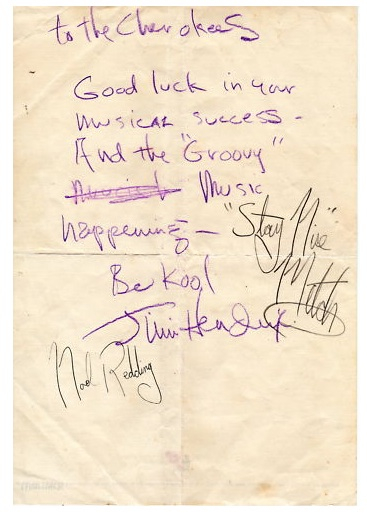 to the Cherokees
Good luck in your
musical success -
And the "Groovy"
Music
happening -
"Stay Nise"
Mitch
Be Kool
Jimi Hendrix
Noel Redding